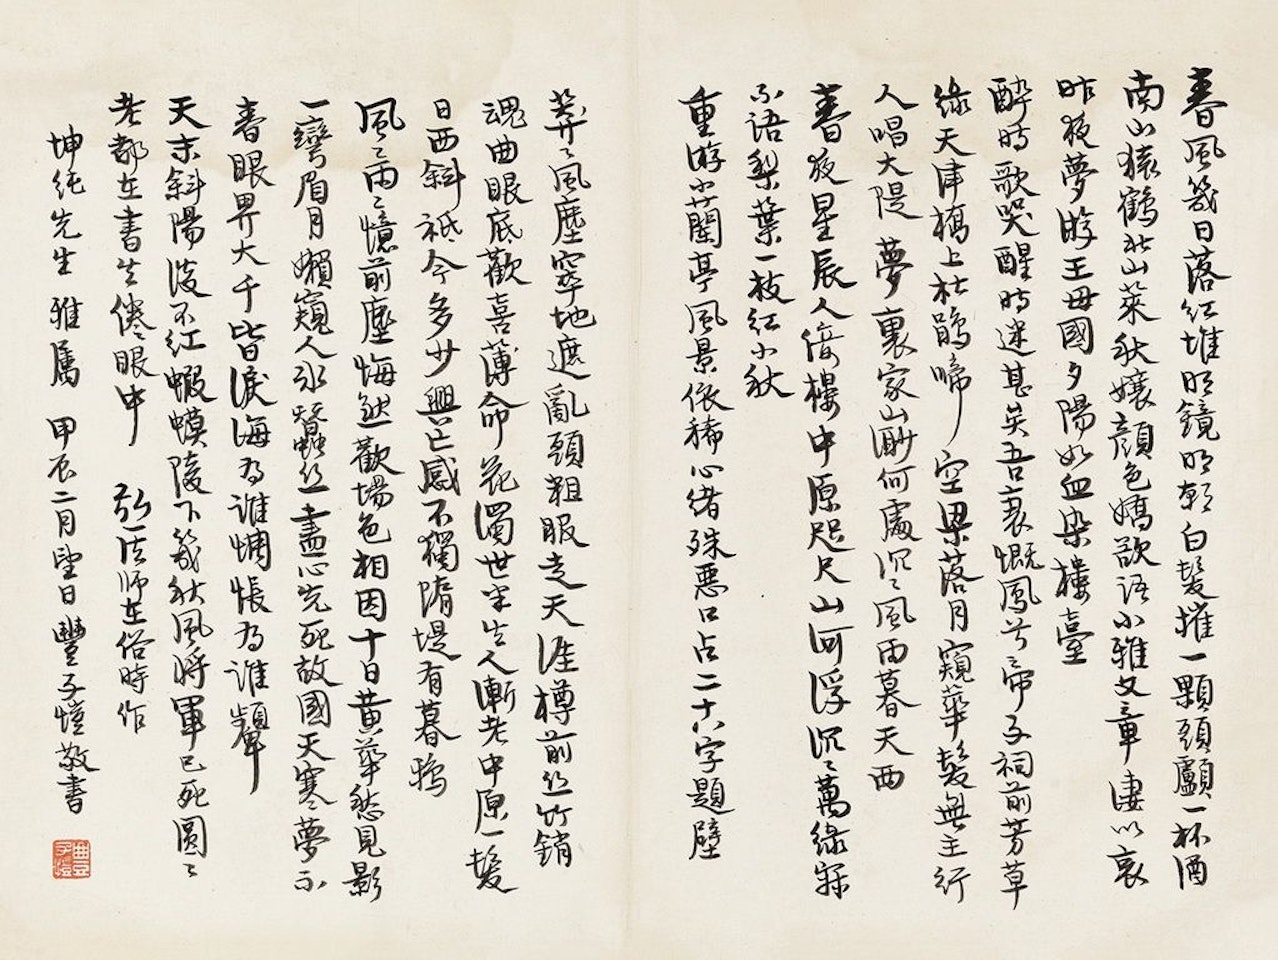 春風幾日落紅堆明鏡明朝白髮摧一顆頭顱一杯酒
南山猿鶴北山萊秋孃顏色嬌欲語小雅文章淒以哀
昨夜夢游王母國夕陽如血染樓臺
醉時歌哭醒時迷甚矣吾衰慨鳳兮帝子祠前芳草
綠天津橋上杜鵑啼空梁落月窺華髮無主行
人唱大隄夢裏家山渺何處沉〻風雨暮天西
春夜星辰人倚樓中原咫尺山河浮沉〻萬綠寂
不語梨葉一枝紅小秋
重游小蘭亭風景依稀心緒殊惡口占二十八字題壁
莽〻風塵窣地遮亂頭粗服走天涯樽前絲竹銷
魂曲眼底歡喜薄命花濁世半生人漸老中原一髮
日西斜祗今多少興亡感不獨隋堤有暮鴉
風〻雨〻憶前塵悔煞歡場色相因十日黃華愁見影
一彎眉月懶窺人冰蠶絲盡心先死故國天寒夢不
春眼界大千皆淚海為誰惆悵為誰顰
天末斜陽淡不紅蝦蟆陵下幾秋風將軍已死圓〻
老都在書生倦眼中 弘一法師在俗時作
坤純先生 雅屬 甲辰二月望日豐子愷敬書
豐子愷